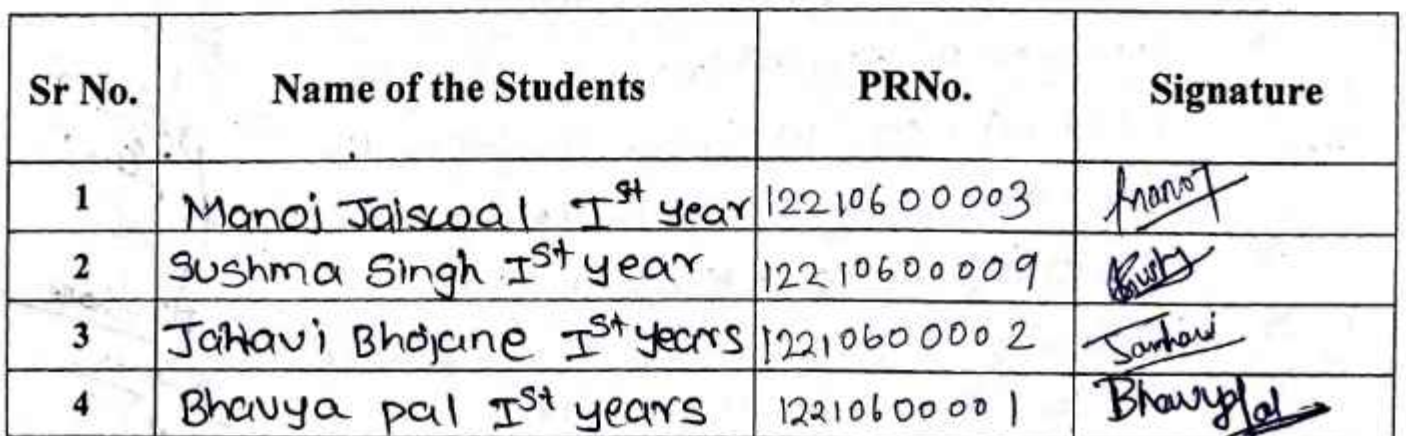 Sr No. Name of the Students PRNo. Signature
1 Manoj Jaiswal Ist year 12210600003 Manoj
2 Sushma Singh Ist year 12210600009
3 Jahavi Bhojane Ist years 12210600002 Janhavi
4 Bhavya pal Ist years 12210600001 Bhavyapal